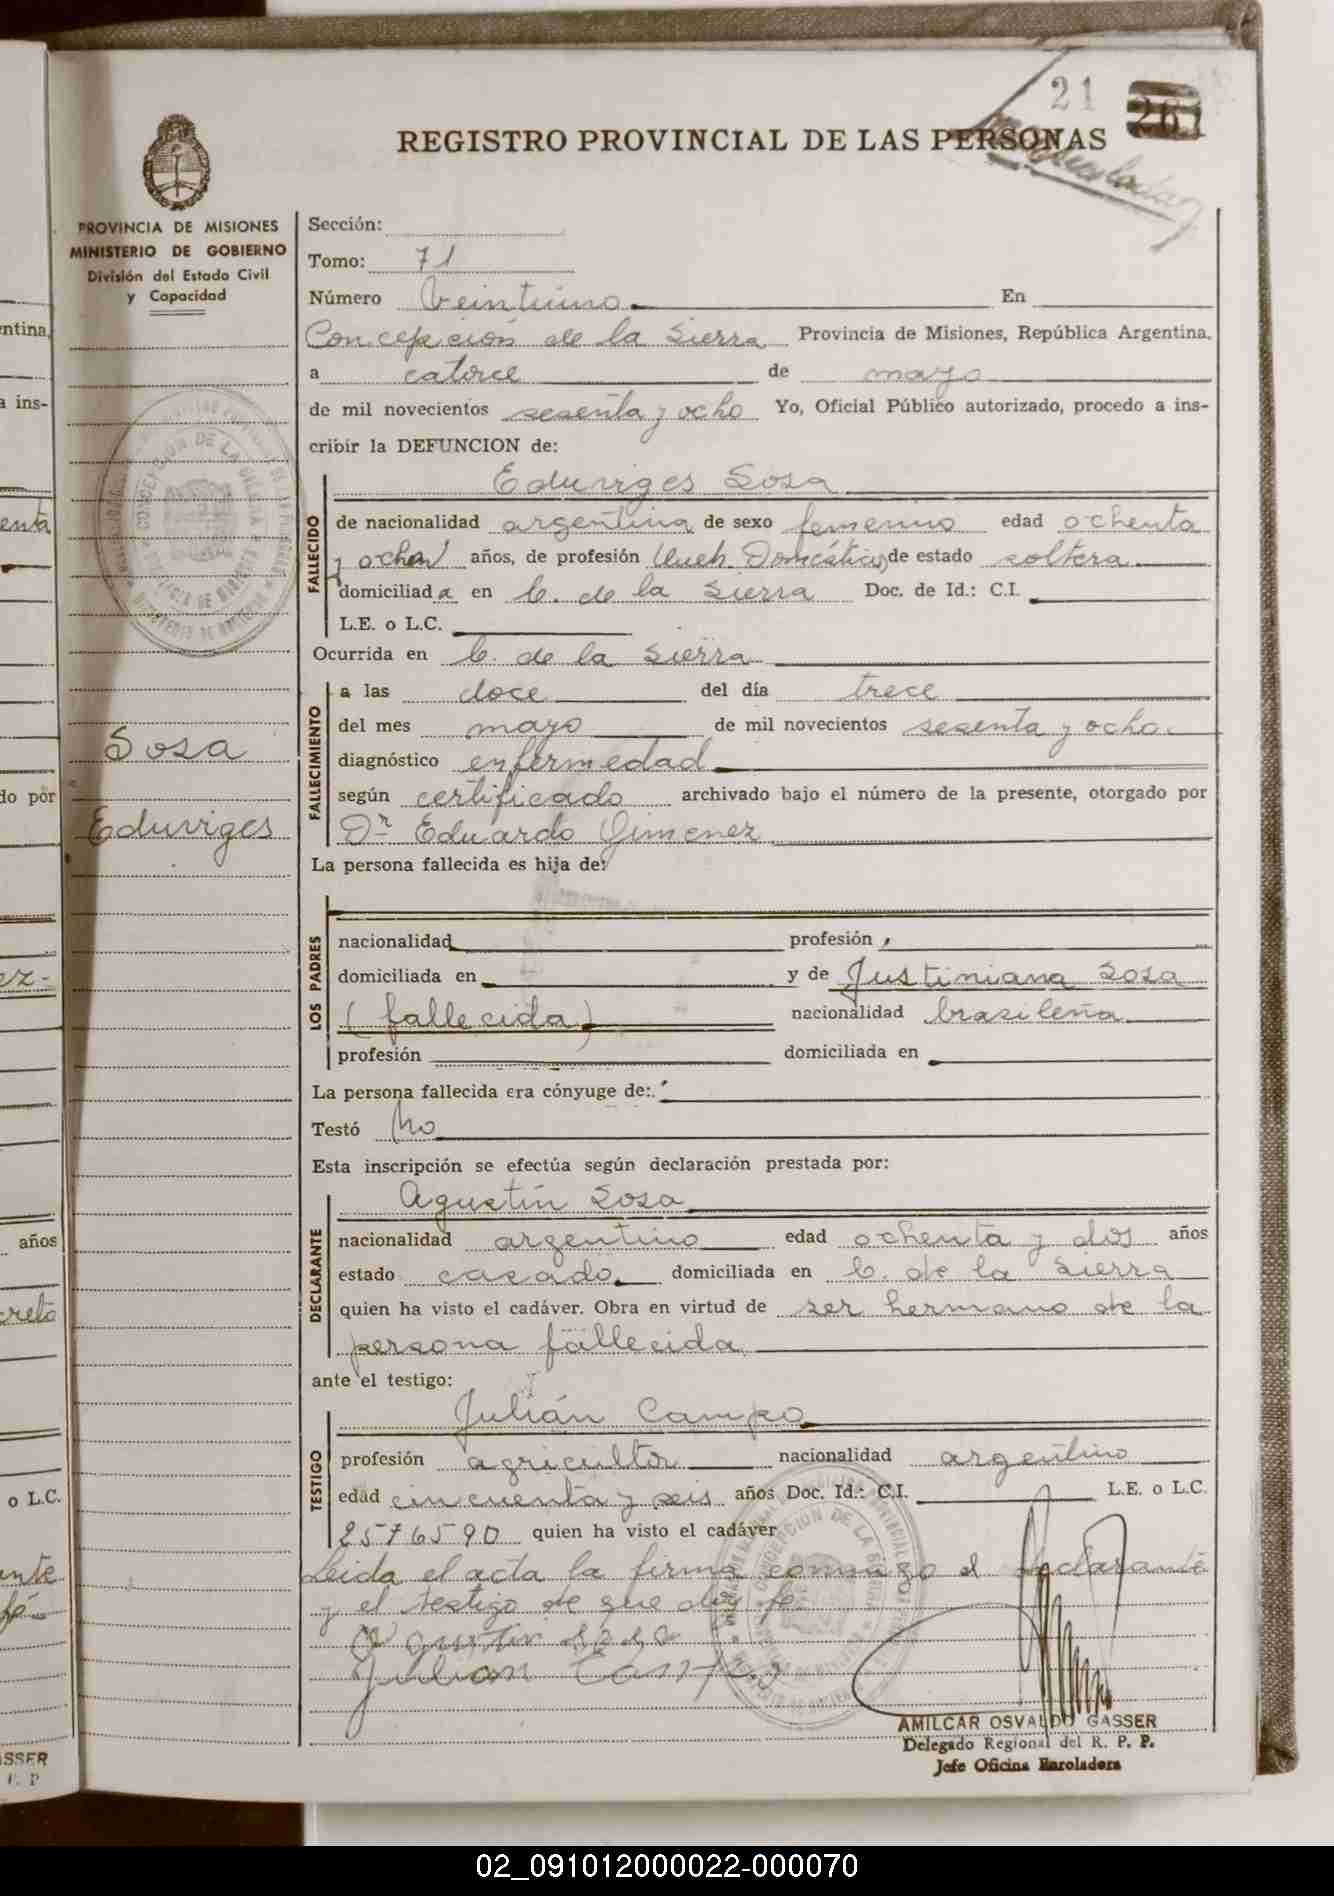 21
261
REGISTRO PROVINCIAL DE LAS PERSONAS
PROVINCIA DE MISIONES
MINISTERIO DE GOBIERNO
División del Estado Civil
y Capacidad
Sección:
Tomo: 71
Número Veintiuno En
Concepción de la Sierra Provincia de Misiones, República Argentina,
a catorce de mayo
de mil novecientos sesenta y ocho Yo, Oficial Público autorizado, procedo a ins-
cribir la DEFUNCION de:
FALLECIDO
Eduviges Sosa
de nacionalidad argentina de sexo femenino edad ochenta
y ocho años, de profesión Queh. Domésticos de estado soltera
domiciliada en C. de la Sierra Doc. de Id.: C.I.
L.E. o L.C.
Ocurrida en C. de la Sierra
FALLECIMIENTO
a las doce del día trece
del mes mayo de mil novecientos sesenta y ocho
diagnóstico enfermedad
según certificado archivado bajo el número de la presente, otorgado por
Dr. Eduardo Gimenez
Sosa
Eduviges
La persona fallecida es hija de:
LOS PADRES
nacionalidad profesión
domiciliada en y de Justiniana Sosa
(fallecida) nacionalidad brasileña
profesión domiciliada en
La persona fallecida era cónyuge de:
Testó No
Esta inscripción se efectúa según declaración prestada por:
DECLARANTE
Agustín Sosa
nacionalidad argentino edad ochenta y dos años
estado casado domiciliada en C. de la Sierra
quien ha visto el cadáver. Obra en virtud de ser hermano de la
persona fallecida
ante el testigo:
TESTIGO
Julián Campo
profesión agricultor nacionalidad argentino
edad cincuenta y seis años Doc. Id.: C.I. L.E. o L.C.
2576590 quien ha visto el cadáver
Leida el acta la firma conmigo el declarante
y el testigo de que doy fe
Agustin Sosa
Julian Campo
AMILCAR OSVALDO GASSER
Delegado Regional del R. P. P.
Jefe Oficina Enroladora
ntina,
a ins-
enta
do por
ez-
años
creto
o L.C.
ante
fé
SSER
02_091012000022-000070